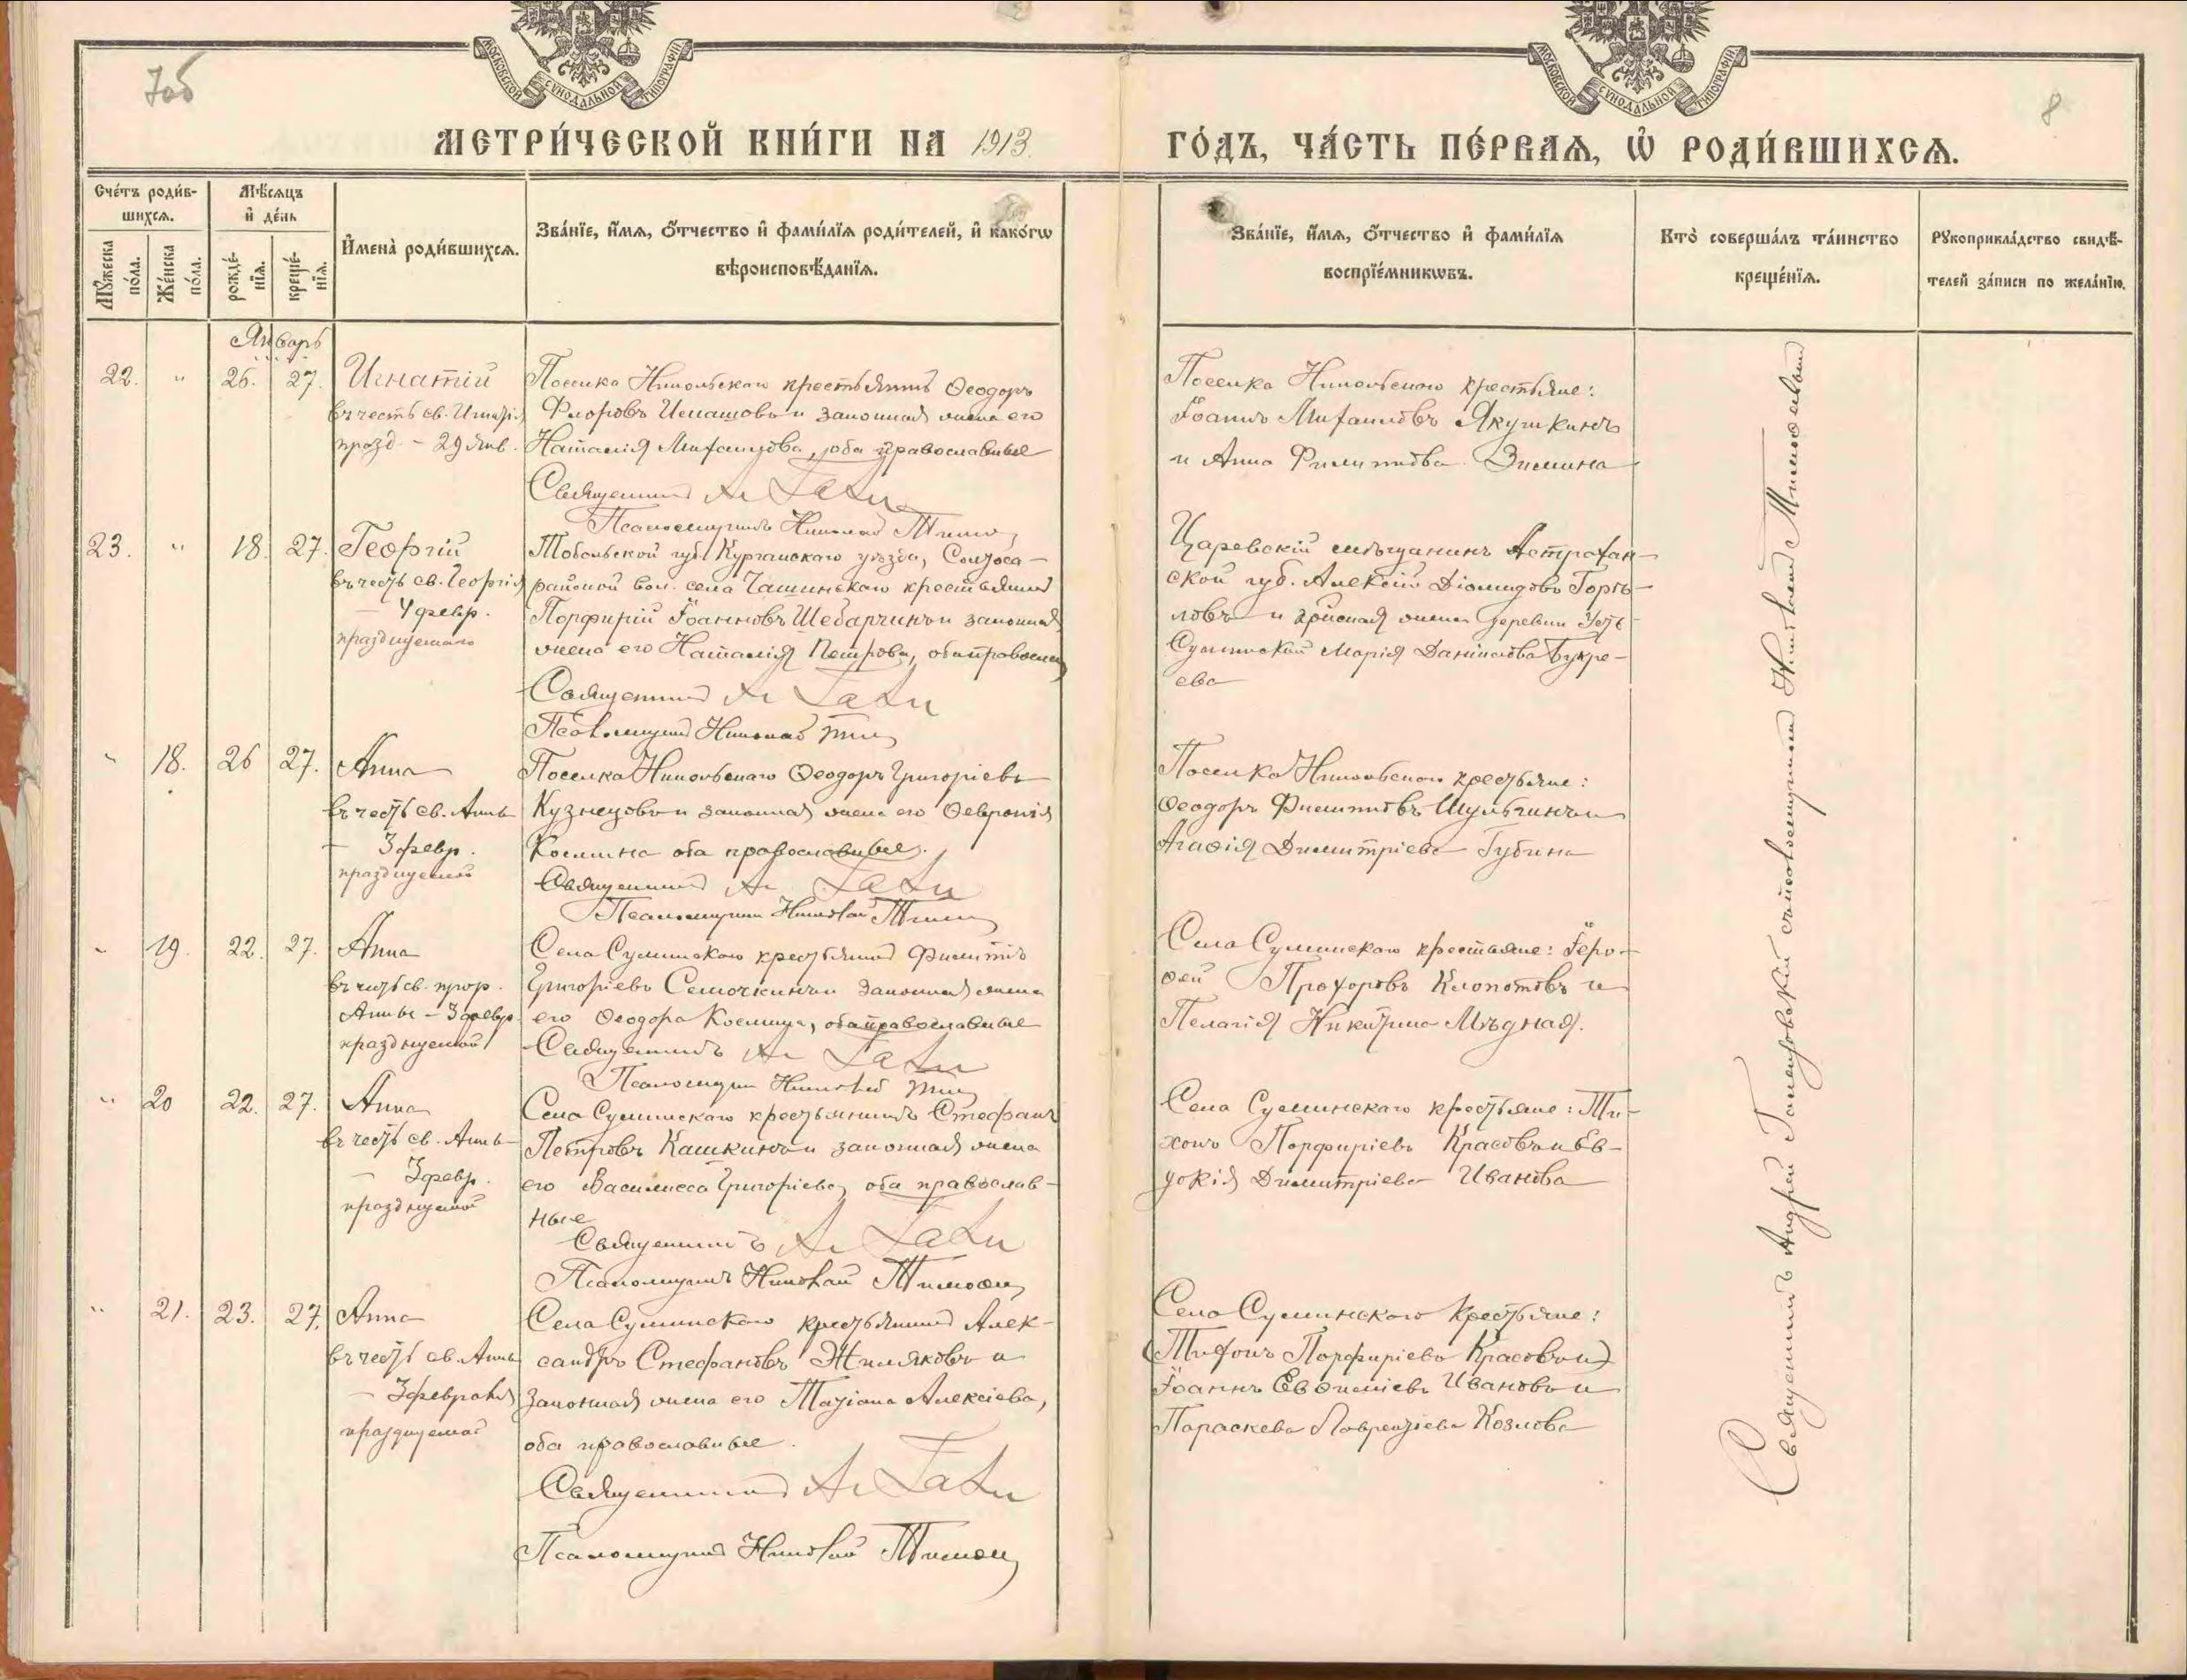 7об
8
МОСКОВСКОЙ СѴНОДАЛЬНОЙ ТИПОГРАФІИ
МОСКОВСКОЙ СѴНОДАЛЬНОЙ ТИПОГРАФІИ
МЕТРИ́ЧЕСКОЙ КНИ́ГИ НА 1913 ГО́ДЪ, ЧА́СТЬ ПЕ́РВАѦ, Ѡ РОДИ́ВШИХСѦ.
Сче́тъ роди́в-
шихсѧ.
Мѣ́сѧцъ
и҆ де́нь
Мꙋ́жеска по́ла.
Же́нска по́ла.
рожде́-нїѧ.
креще́-нїѧ.
И҆мена̀ роди́вшихсѧ.
Зва́нїе, и҆́мѧ, ѻ҆́тчество и҆ фами́лїѧ роди́телей, и҆ како́гѡ
вѣроисповѣ́данїѧ.
Зва́нїе, и҆́мѧ, ѻ҆́тчество и҆ фами́лїѧ
воспрїе́мникѡвъ.
Кто̀ соверша́лъ та́инство
креще́нїѧ.
Рꙋкоприкла́дство свидѣ́-
телей за́писи по жела́нїю.
Январь
22. " 26. 27. Игнатій
въ честь св. Игнатія
празд. - 29 янв.
Поселка Никольскаго крестьянинъ Ѳеодоръ
Флоровъ и законная жена его
Наталія Михаилова, оба православные
Священникъ
Псаломщикъ Николай
Поселка Никольскаго крестьяне:
Іоаннъ Михаиловъ Якушкинъ
и Анна Филиппова Зимина
23. " 18. 27. Георгій
въ честь св. Георгія
- 4 февр.
празднуемаго
Тобольской губ. Курганскаго уѣзда,
вол. села Чашинскаго крестьянинъ
Порфирій Іоанновъ Шебарчинъ и законная
жена его Наталія Петрова, оба православн
Священникъ
Псаломщикъ Николай
Царевскій мѣщанинъ Астрахан-
ской губ. Алексій Діомидовъ Горѣ-
ловъ и жена деревни Усть
Суминской Марія Даніилова Букре-
ева
" 18. 26 27. Анна
въ честь св. Анны
- 3 февр.
празднуемой
Поселка Никольскаго Ѳеодоръ Григоріевъ
Кузнецовъ и законная жена его Ѳевронія
Космина оба православные.
Священникъ
Псаломщикъ Николай
Поселка Никольскаго крестьяне:
Ѳеодоръ Филипповъ Шульгинъ и
Агаѳія Димитріева Губина
" 19. 22. 27. Анна
въ честь св. прор.
Анны - 3 февр.
празднуемой
Села Суминскаго крестьянинъ Филиппъ
Григоріевъ Семочкинъ и законная жена
его Ѳеодора Космина, оба православные
Священникъ
Псаломщикъ Николай
Села Суминскаго крестьяне: Іеро-
ѳей Прохоровъ Клопотовъ и
Пелагія Никитина Мѣдная.
" 20 22. 27. Анна
въ честь св. Анны
- 3 февр.
празднуемой
Села Суминскаго крестьянинъ Стефанъ
Петровъ Кашкинъ и законная жена
его Василисса Григоріева, оба православ-
ные
Священникъ
Псаломщикъ Николай Тимоѳеевъ
Села Суминскаго крестьяне: Ти-
хонъ Порфиріевъ Красовъ и Ев-
докія Димитріева Иванова
" 21. 23. 27. Анна
въ честь св. Анны
- 3 февраля
празднуемой
Села Суминскаго крестьянинъ Алек-
сандръ Стефановъ Жиляковъ и
законная жена его Татіана Алексіева,
оба православные.
Священникъ
Псаломщикъ Николай Тимоѳеевъ
Села Суминскаго крестьяне:
(Тихонъ Порфиріевъ Красовъ и)
Іоаннъ Евѳиміевъ Ивановъ и
Параскева Лаврентіева Козлова
Священникъ Андрей съ псаломщикомъ Николаемъ Тимоѳеевымъ